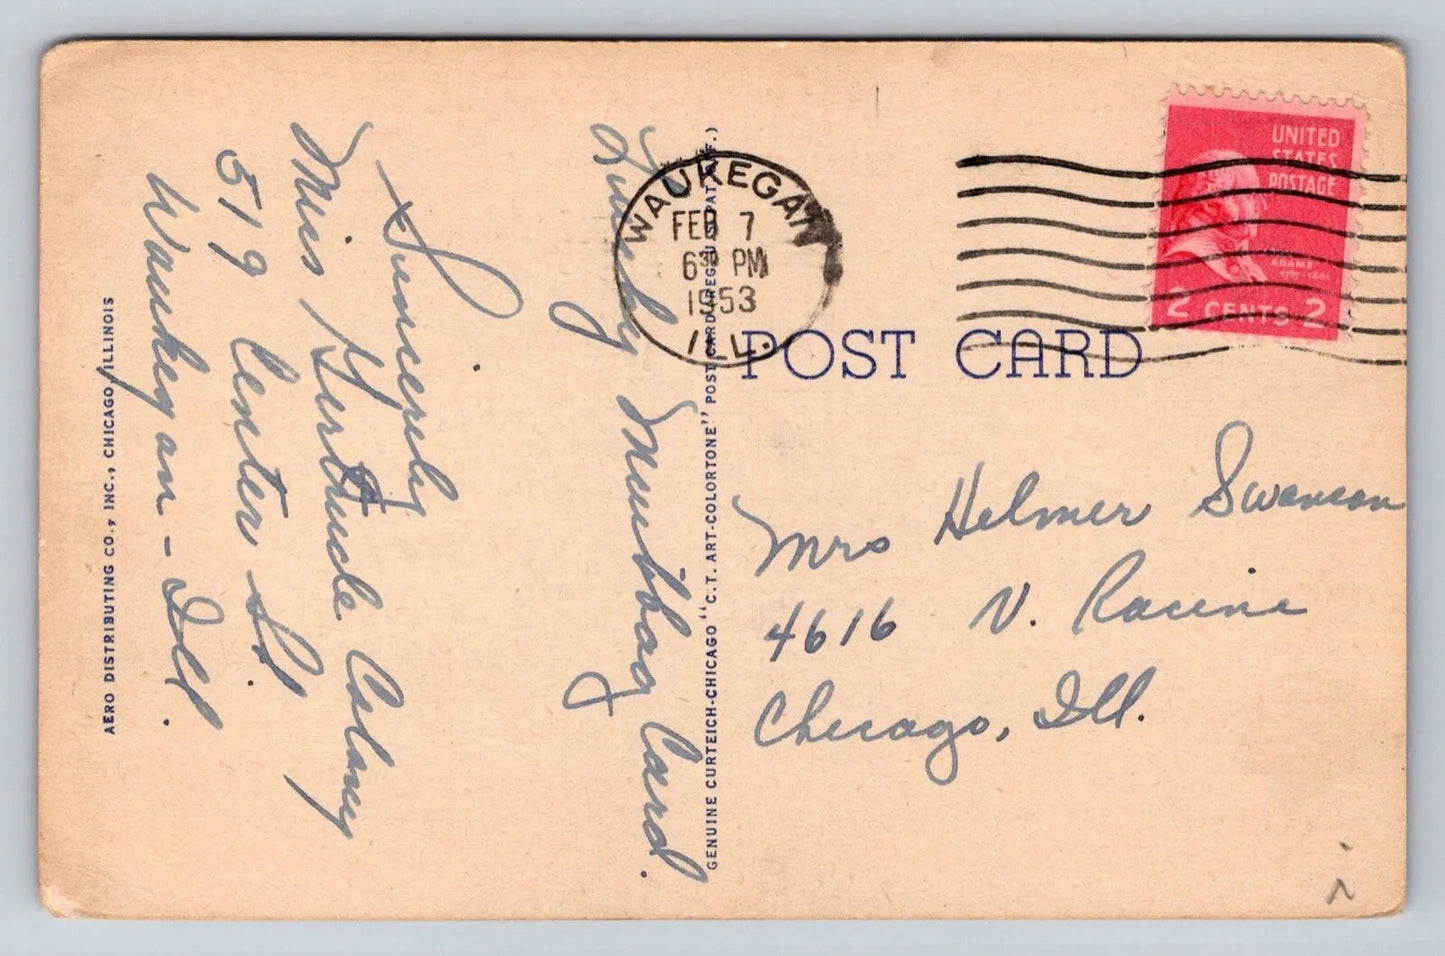 Lucky Mutthag Card.
Sincerely
Miss Gertrude Colaney
519 Center St.
Waukegan - Ill.
AERO DISTRIBUTING CO., INC., CHICAGO, ILLINOIS
GENUINE CURTEICH-CHICAGO "C.T. ART-COLORTONE" POST CARD (REG. U.S. PAT. OFF.)
WAUKEGAN
FEB 7
6 30 PM
1953
ILL.
UNITED
STATES
POSTAGE
ADAMS
1797-1801
2 CENTS 2
POST CARD
Mrs Helmer Swanson
4616 N. Racine
Chicago, Ill.